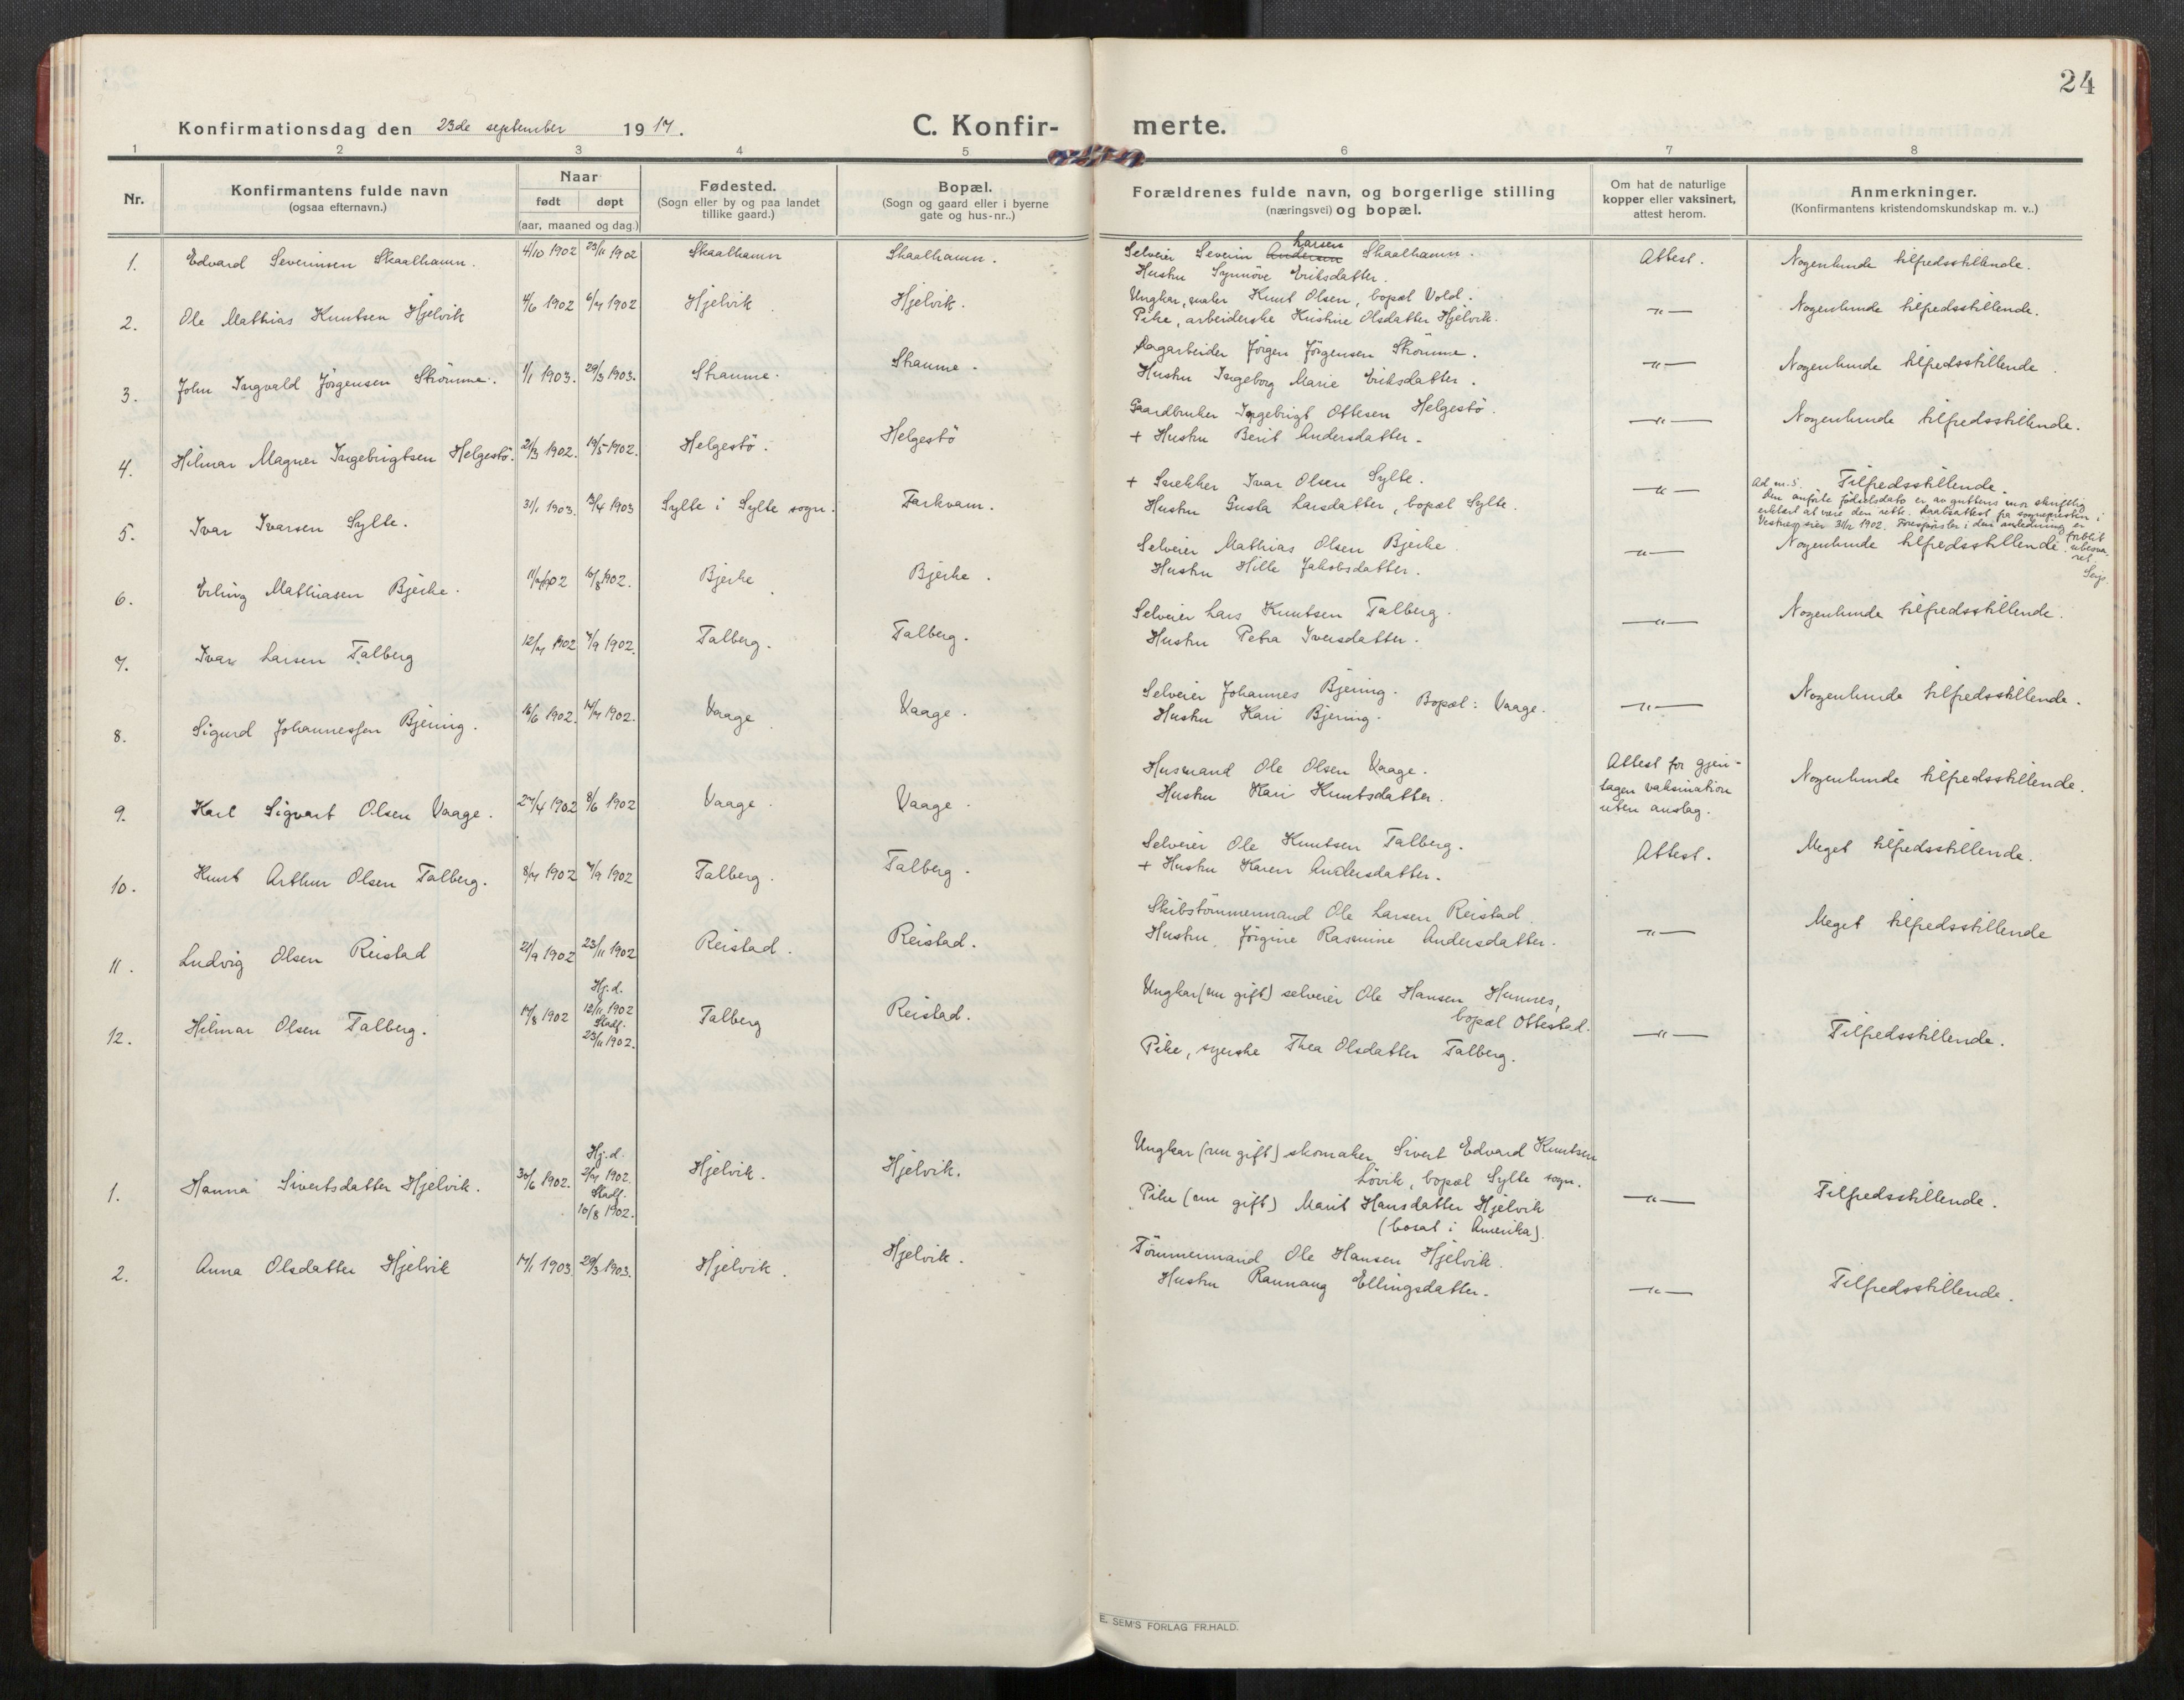 24
Konfirmationsdag den 23de september 1917.
C. Konfir- merte.
1 2 3 4 5 6 7 8
Nr.
Konfirmantens fulde navn
(ogsaa efternavn.)
Naar
født døpt
(aar, maaned og dag.)
Fødested.
(Sogn eller by og paa landet
tillike gaard.)
Bopæl.
(Sogn og gaard eller i byerne
gate og hus-nr..)
Forældrenes fulde navn, og borgerlige stilling
(næringsvei) og bopæl.
Om hat de naturlige
kopper eller vaksinert,
attest herom.
Anmerkninger.
(Konfirmantens kristendomskundskap m. v..)
1. Edvard Severinsen Skaalhamn. 4/10 1902 23/11 1902 Skaalhamn Skaalhamn.
Selveier Severin Andersen Larsen Skaalhamn.
Hustru Synnöve Eriksdatter.
Attest. Nogenlunde tilfredsstillende.
2. Ole Mathias Knutsen Hjelvik 4/6 1902 6/7 1902 Hjelvik Hjelvik.
Ungkar, maler Knut Olsen, bopæl Vold.
Pike, arbeiderske Kristine Olsdatter Hjelvik.
—"— Nogenlunde tilfredsstillende.
3. John Ingvald Jörgensen Strömme. 1/1 1903. 29/3 1903. Straume. Straume.
Dagarbeider Jörgen Jörgensen Strömme.
Hustru Ingeborg Marie Eriksdatter.
—"— Nogenlunde tilfredsstillende.
4. Hilmar Magner Ingebrigtsen Helgestö. 21/3 1902. 19/5 1902. Helgestö. Helgestö
Gaardbruker Ingebrigt Ottesen Helgestö.
+ Hustru Berit Andersdatter.
—"— Nogenlunde tilfredsstillende.
5. Ivar Ivarsen Sylte. 31/1 1903. 13/4 1903 Sylte i Sylte sogn. Farkvam.
+ Snekker Ivar Olsen Sylte.
Hustru Gusta Larsdatter, bopæl Sylte.
—"— Tilfredsstillende.
Ad nr. 5.
Den anførte fødselsdato er av guttens mor skriftlig
erklært at være den rette. Daabsattest fra sognepresten i
Vestnes sier 31/12 1902. Forespørsler i den anledning er
forblit ubesva-
ret.
6. Erling Mathiasen Bjerke. 1902 10/8 1902. Bjerke Bjerke.
Selveier Mathias Olsen Bjerke.
Hustru Hille Jakobsdatter.
—"— Nogenlunde tilfredsstillende.
7. Ivar Larsen Talberg 12/7 1902 7/9 1902. Talberg. Talberg.
Selveier Lars Knutsen Talberg.
Hustru Petra Iversdatter.
—"— Nogenlunde tilfredsstillende.
8. Sigurd Johannessen Bjering. 16/6 1902. 14/7 1902. Vaage Vaage.
Selveier Johannes Bjering. Bopæl: Vaage.
Hustru Kari Bjering.
—"— Nogenlunde tilfredsstillende.
9. Karl Sigvart Olsen Vaage. 27/4 1902 8/6 1902 Vaage. Vaage.
Husmand Ole Olsen Vaage.
Hustru Kari Knutsdatter.
Attest for gjen-
tagen vaksination
uten anslag.
Nogenlunde tilfredsstillende.
10. Knut Arthur Olsen Talberg. 8/7 1902 7/9 1902 Talberg. Talberg.
Selveier Ole Knutsen Talberg.
+ Hustru Karen Andersdatter.
Attest. Meget tilfredsstillende.
11. Ludvig Olsen Reistad 21/9 1902 23/11 1902 Reistad. Reistad.
Skibstömmermand Ole Larsen Reistad.
Hustru Jörgine Rasmine Andersdatter.
—"— Meget tilfredsstillende
12. Hilmar Olsen Talberg. 17/8 1902
Hj.d.
12/11 1902
Stadf.
23/11 1902.
Talberg Reistad.
Ungkar (nu gift) selveier Ole Hansen Hunnes,
bopæl Ottestad.
Pike, syerske Thea Olsdatter Talberg.
—"— Tilfredsstillende.
1. Hanna Sivertsdatter Hjelvik. 30/6 1902.
Hj.d.
2/7 1902.
Stadf.
10/8 1902.
Hjelvik. Hjelvik.
Ungkar (nu gift) skomaker Sivert Edvard Knutsen
Lövik, bopæl Sylte sogn.
Pike (nu gift) Marit Hansdatter Hjelvik
(bosat i Amerika).
—"— Tilfredsstillende.
2. Anna Olsdatter Hjelvik 17/1 1903. 29/3 1903. Hjelvik. Hjelvik.
Tömmermand Ole Hansen Hjelvik.
Hustru Rannaug Ellingsdatter.
—"— Tilfredsstillende.
E. SEM'S FORLAG FR.HALD.